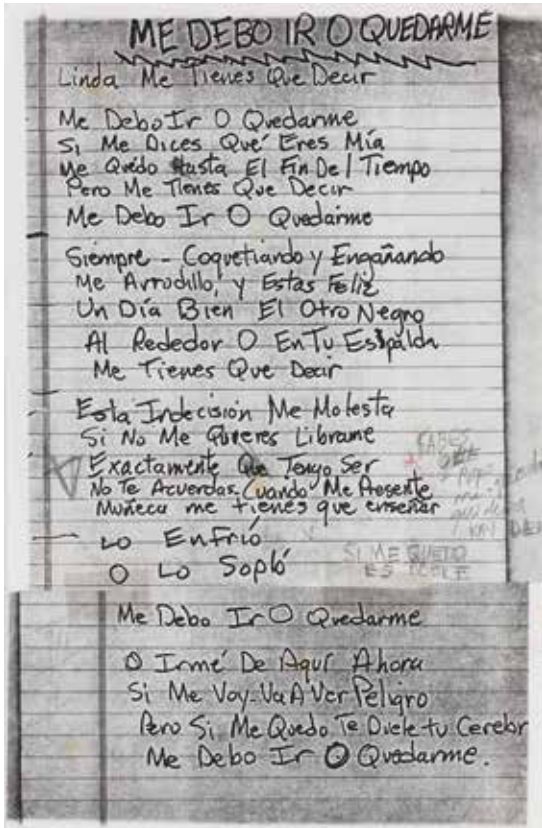 ME DEBO IR O QUEDARME
Linda Me Tienes Que Decir
Me Debo Ir O Quedarme
Si Me Dices Qué Eres Mía
Me Quedo Hasta El Fin Del Tiempo
Pero Me Tienes Que Decir
Me Debo Ir O Quedarme
Siempre - Coquetiando y Engañando
Me Arrodillo, y Estas Feliz
Un Día Bien El Otro Negro
Al Rededor O En Tu Espalda
Me Tienes Que Decir
Esta Indecisión Me Molesta
Si No Me Quieres Librame
Exactamente Que Tengo Ser
No Te Acuerdas. Cuando Me Presente
Muñeca me tienes que enseñar
Lo Enfrió
O Lo Sopló
SABES
QUE
SI ME QUEDO
ES DOBLE
Me Debo Ir O Quedarme
O Irmé De Aquí Ahora
Si Me Voy-Va A Ver Peligro
Pero Si Me Quedo Te Duele tu Cerebr
Me Debo Ir O Quedarme.